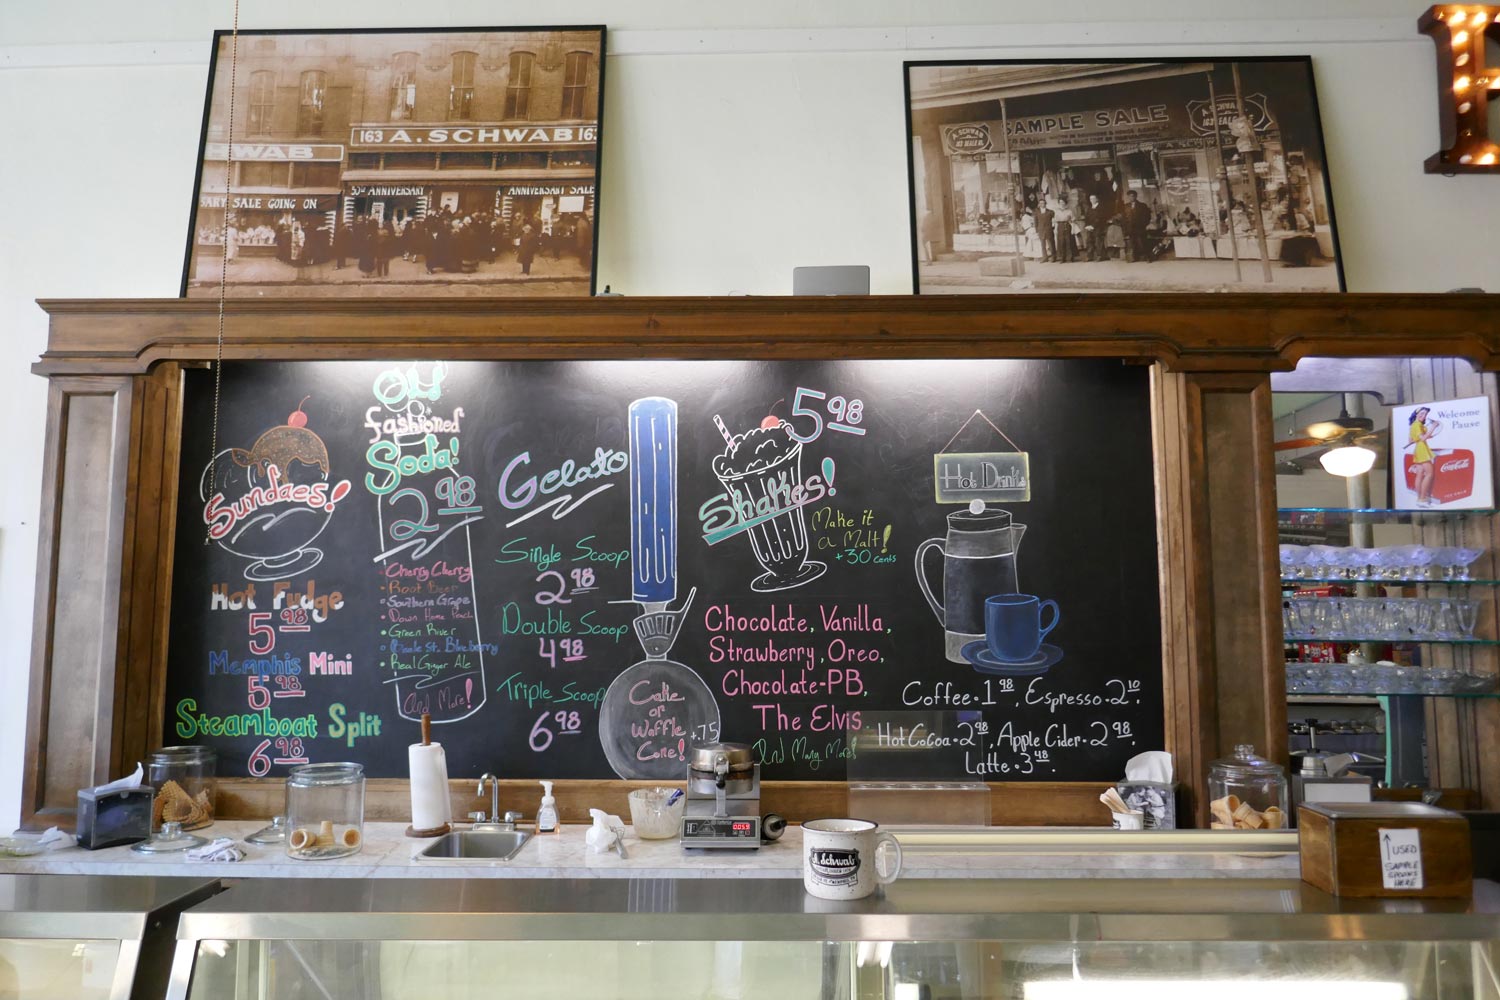 163 A. SCHWAB 163
WAB
50TH ANNIVERSARY
ANNIVERSARY SALE
SARY SALE GOING ON
SAMPLE SALE
A. SCHWAB
163 BEALE
A. SCHWAB
Welcome
Pause
Coca-Cola
Sundaes!
Hot Fudge
5.98
Memphis Mini
5.98
Steamboat Split
6.98
Old
fashioned
Soda!
2.98
• Cherry Cherry
• Root Beer
• Southern Grape
• Down Home Peach
• Green River
• Beale St. Blueberry
• Real Ginger Ale
And More!
Gelato
Single Scoop
2.98
Double Scoop
4.98
Triple Scoop
6.98
Cake
or
Waffle
Cone!
+.75
5.98
Shakes!
Make it
a Malt!
+30 cents
Chocolate, Vanilla,
Strawberry, Oreo,
Chocolate-PB,
The Elvis
And Many More!
Hot Drinks
Coffee • 1.98, Espresso • 2.10,
Hot Cocoa • 2.98, Apple Cider • 2.98,
Latte • 3.48.
A. Schwab
USED
SAMPLE
SPOONS
HERE